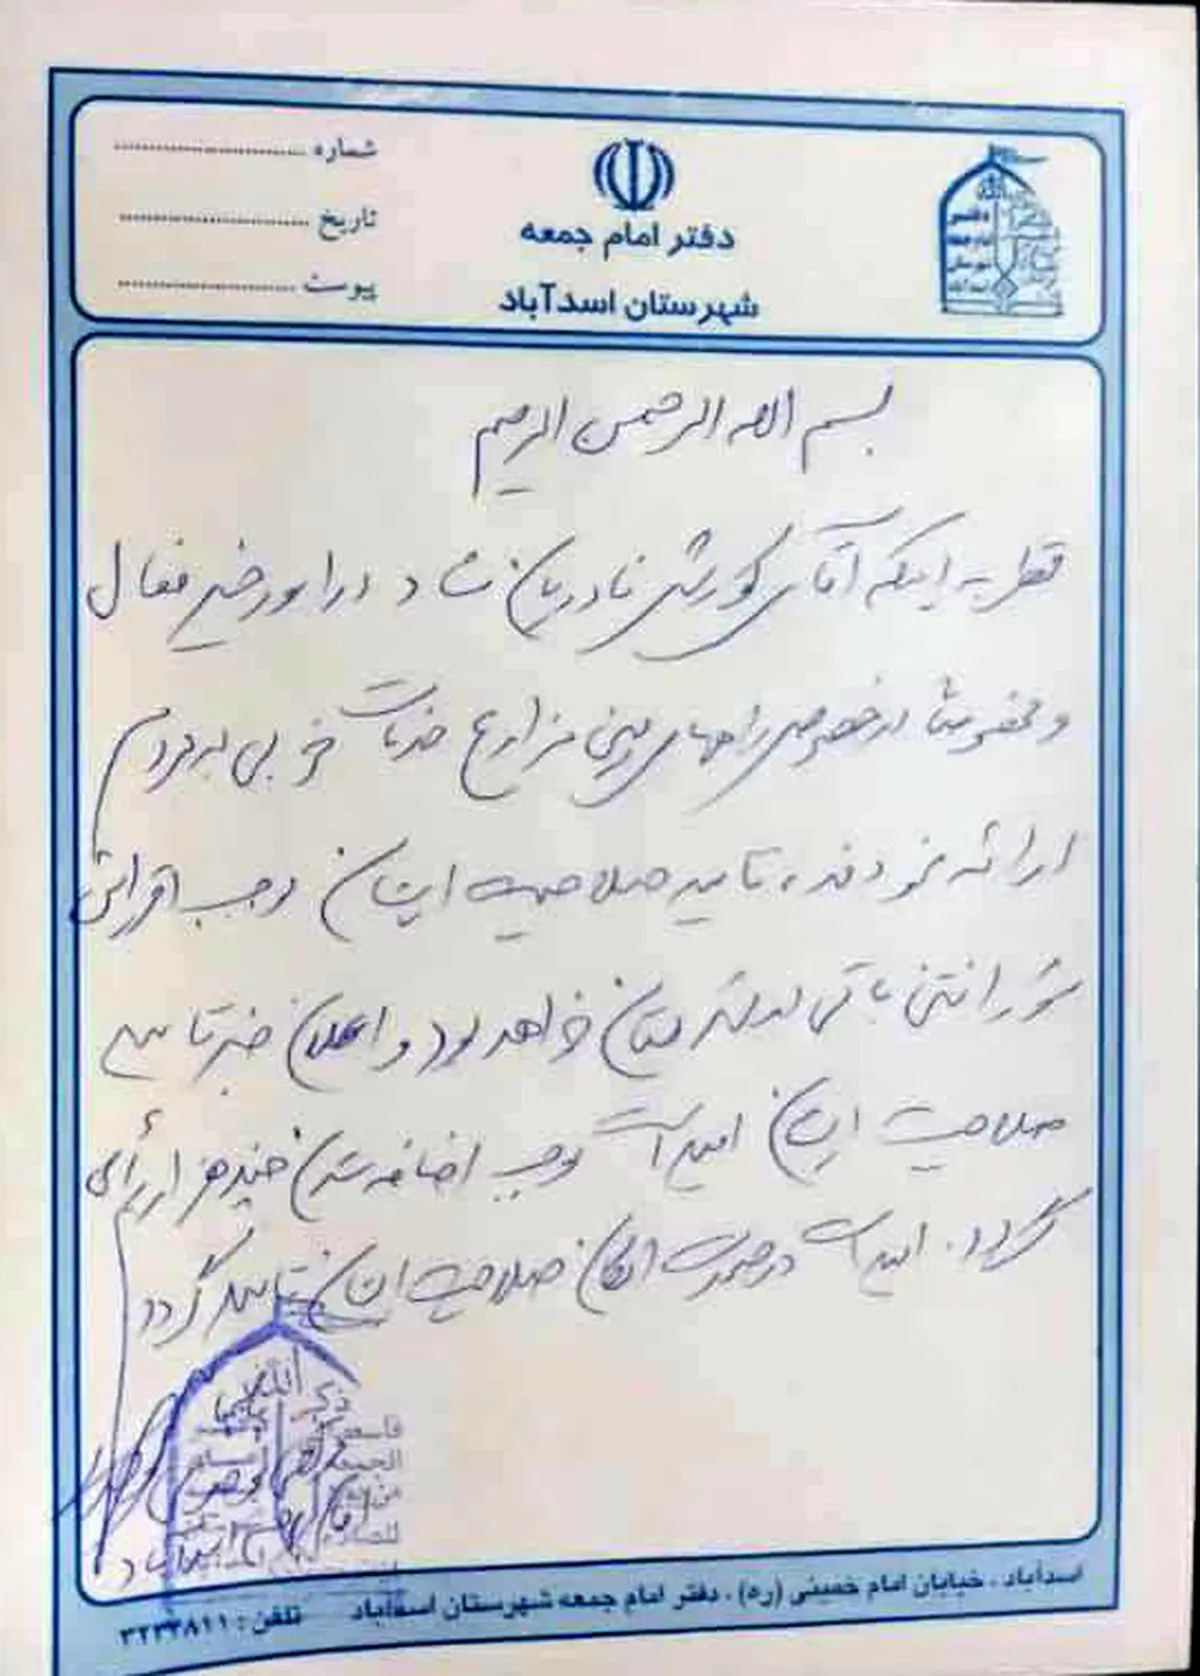 شماره
تاریخ
پیوست
دفتر امام جمعه
شهرستان اسدآباد
بسم الله الرحمن الرحیم
نظر به اینکه آقای کورش نادریان شاد در امور خیر فعال
و مخصوصا در خصوص راههای بین مزارع خدمات خوبی به مردم
ارائه نمودند، تایید صلاحیت ایشان موجب افزایش
شور انتخاباتی در شهرستان خواهد بود و اعلان خبر تایید
صلاحیت ایشان امید است موجب اضافه شدن چند هزار رأی
گردد. امید است در صورت امکان صلاحیت ایشان تایید گردد
امام جمعه اسدآباد
اسدآباد ، خیابان امام خمینی (ره) ، دفتر امام جمعه شهرستان اسدآباد تلفن : ۳۲۳۳۸۱۱